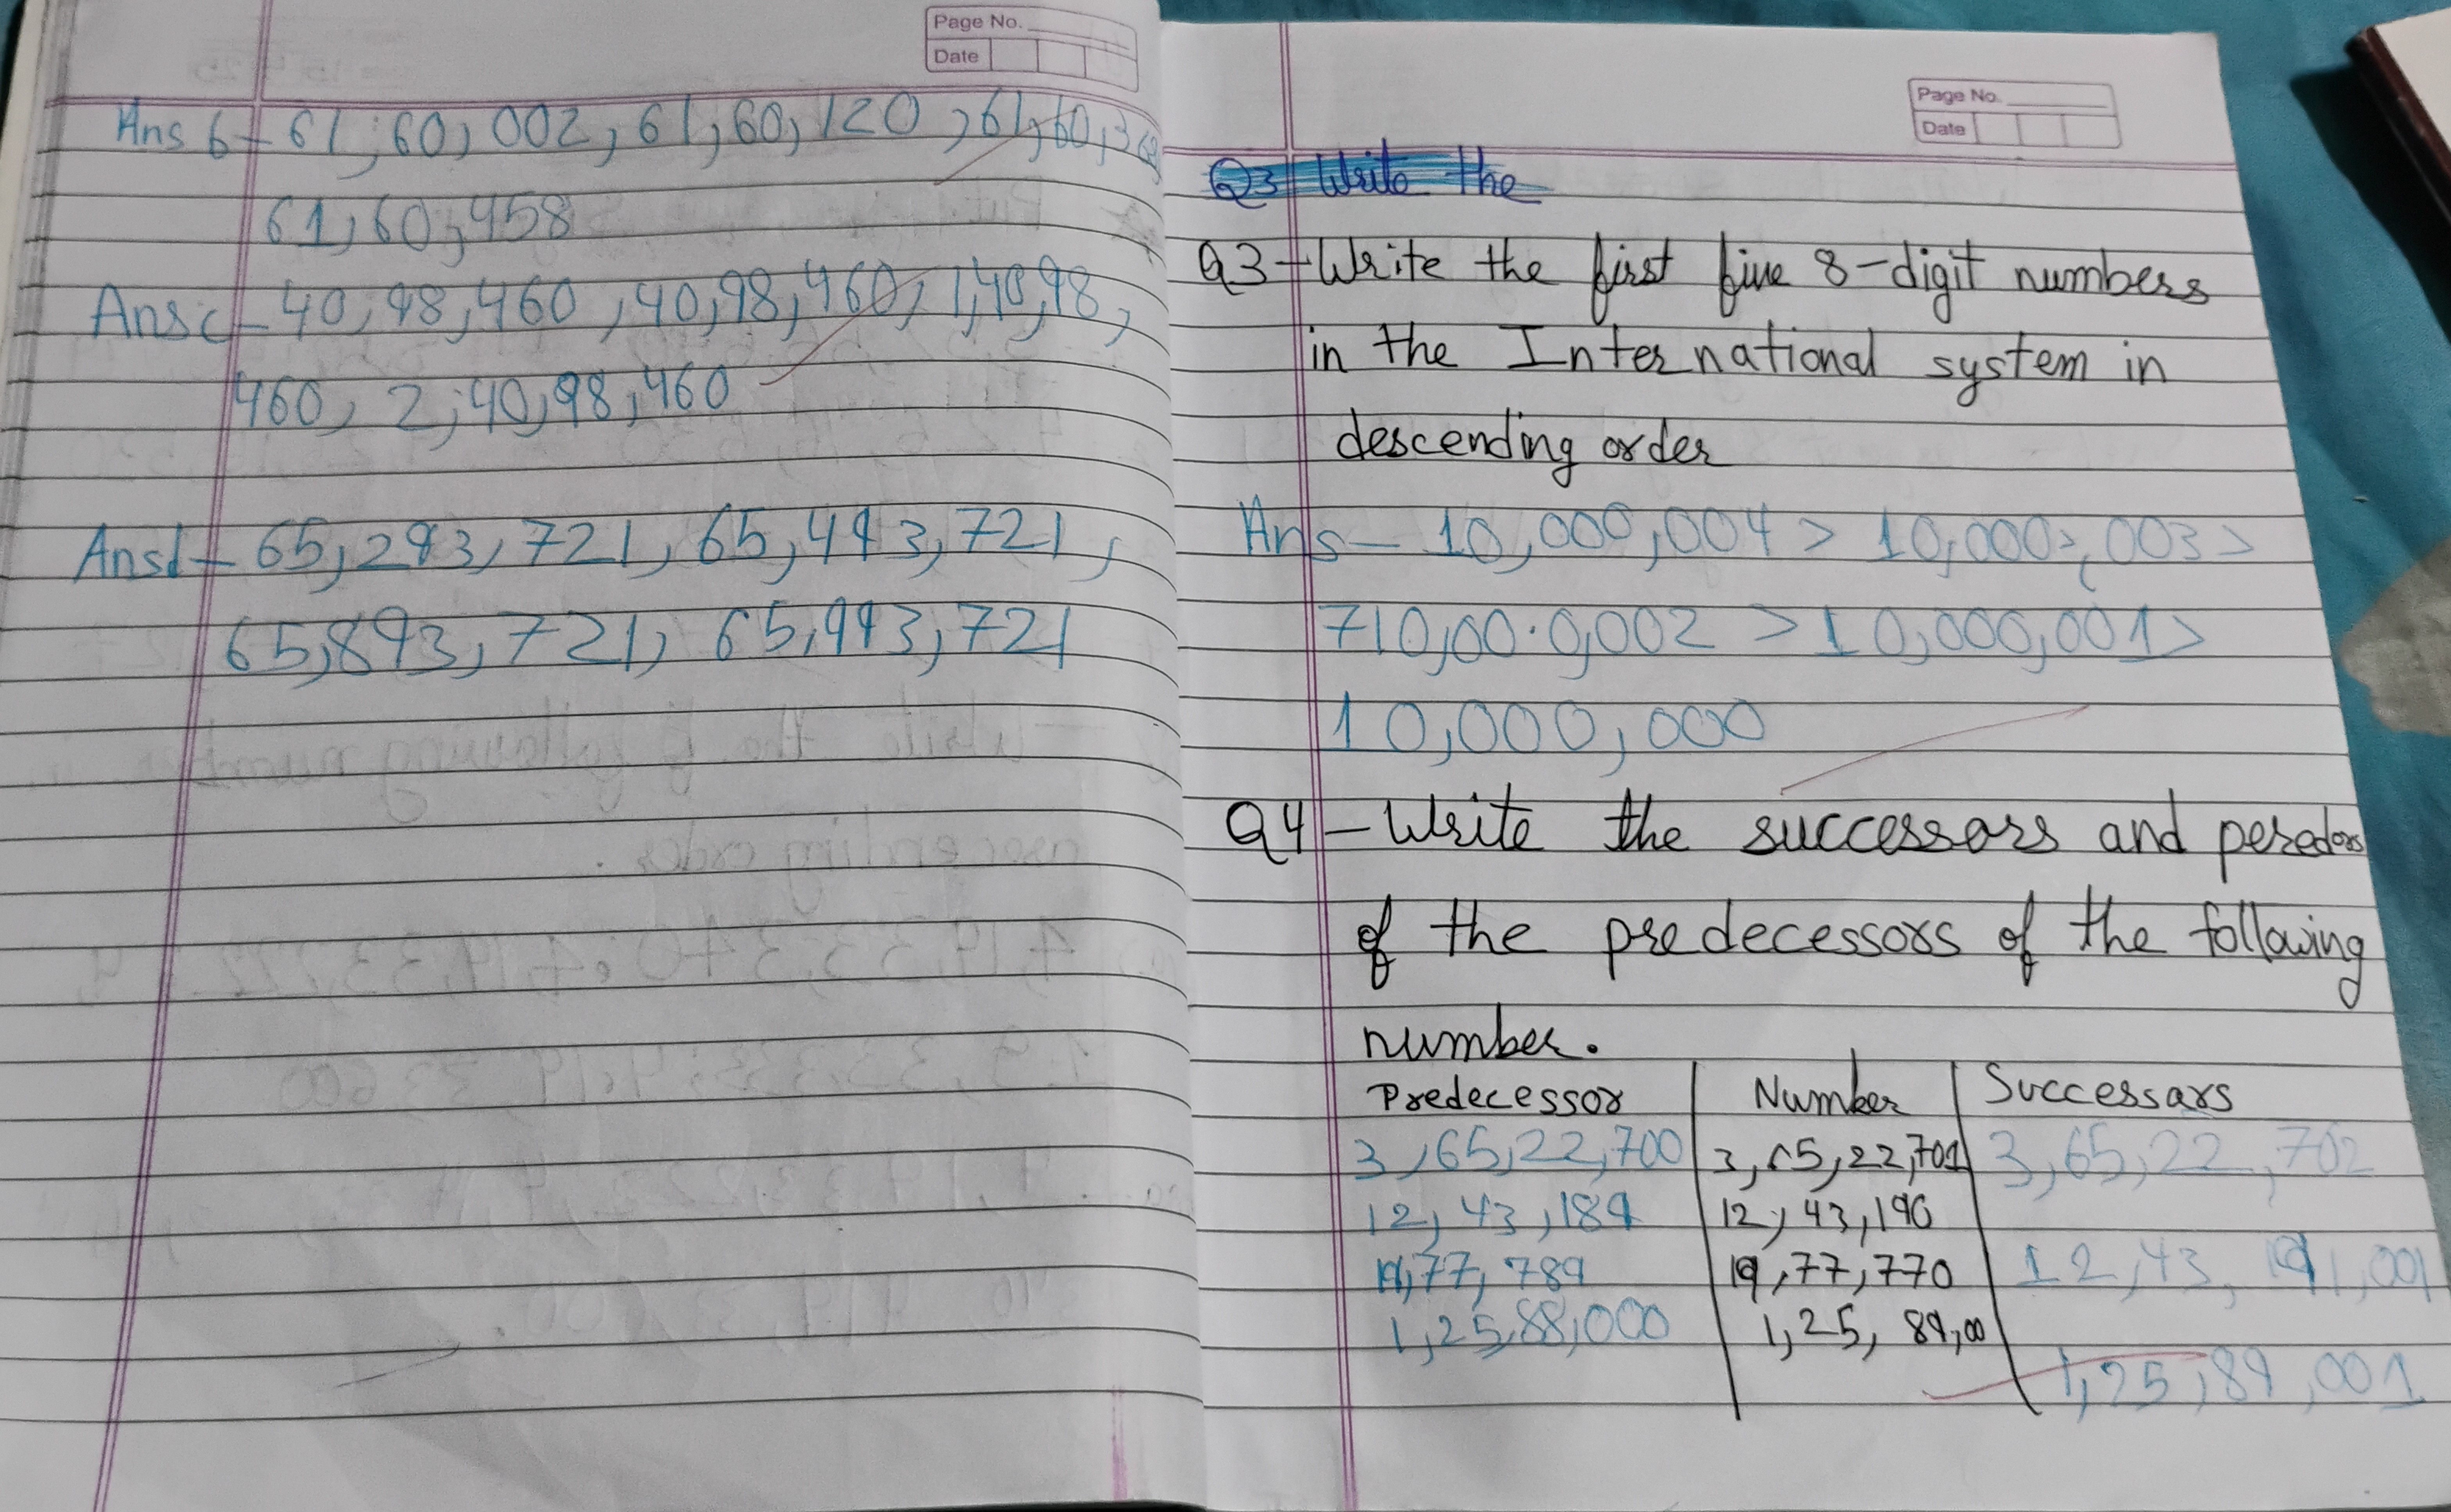 Page No.
Date
Ans 6-61,60,002,61,60,120,61,60,368
61,60,458
Ans c-40,98,460,40,98,460,1,40,98,
460, 2,40,98,460
Ans d-65,293,721,65,493,721,
65,893,721,65,993,721
Page No.
Date
Q3 Write the
Q3-Write the first five 8-digit numbers
in the International system in
descending order
Ans-10,000,004>10,000,003>
710,000,002>10,000,001>
10,000,000
Q4-Write the successors and
of the predecessors of the following
number.
Predecessor Number Successars
3,65,22,700 3,65,22,701 3,65,22,702
12,43,189 12,43,190
19,77,789 19,77,770 12,43,191,001
1,25,88,000 1,25,89,00
1,25,89,001